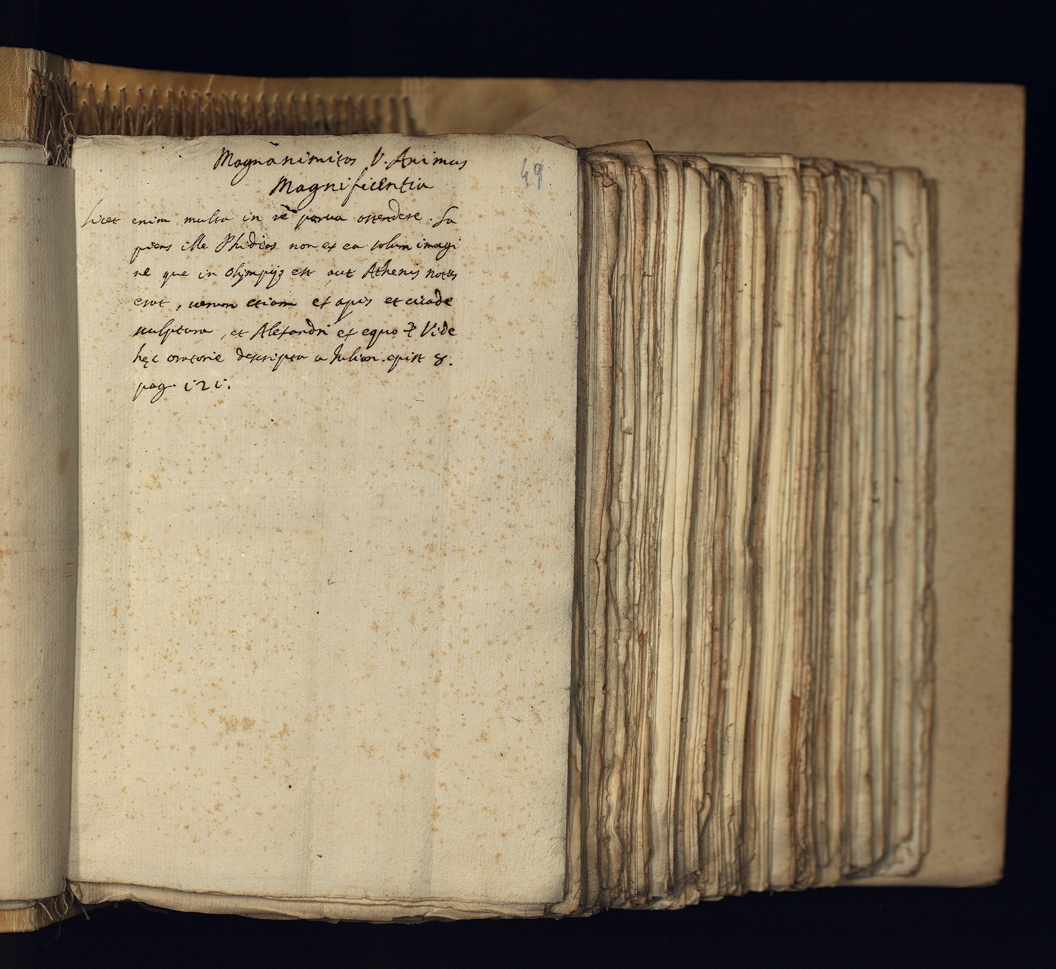 Magnanimitas V. Animus
49
Magnificentia
licet enim multa in re parua ostendere. Sa
piens ille Phidias non ex ea solum imagi
ne que in Olympijs est aut Athenis notus
erat, uerum etiam ex apis et cicade
sculptura, et Alexandri ex equo Vide
hęc oratorie descripta a Julian. epist 8.
pag. 121.